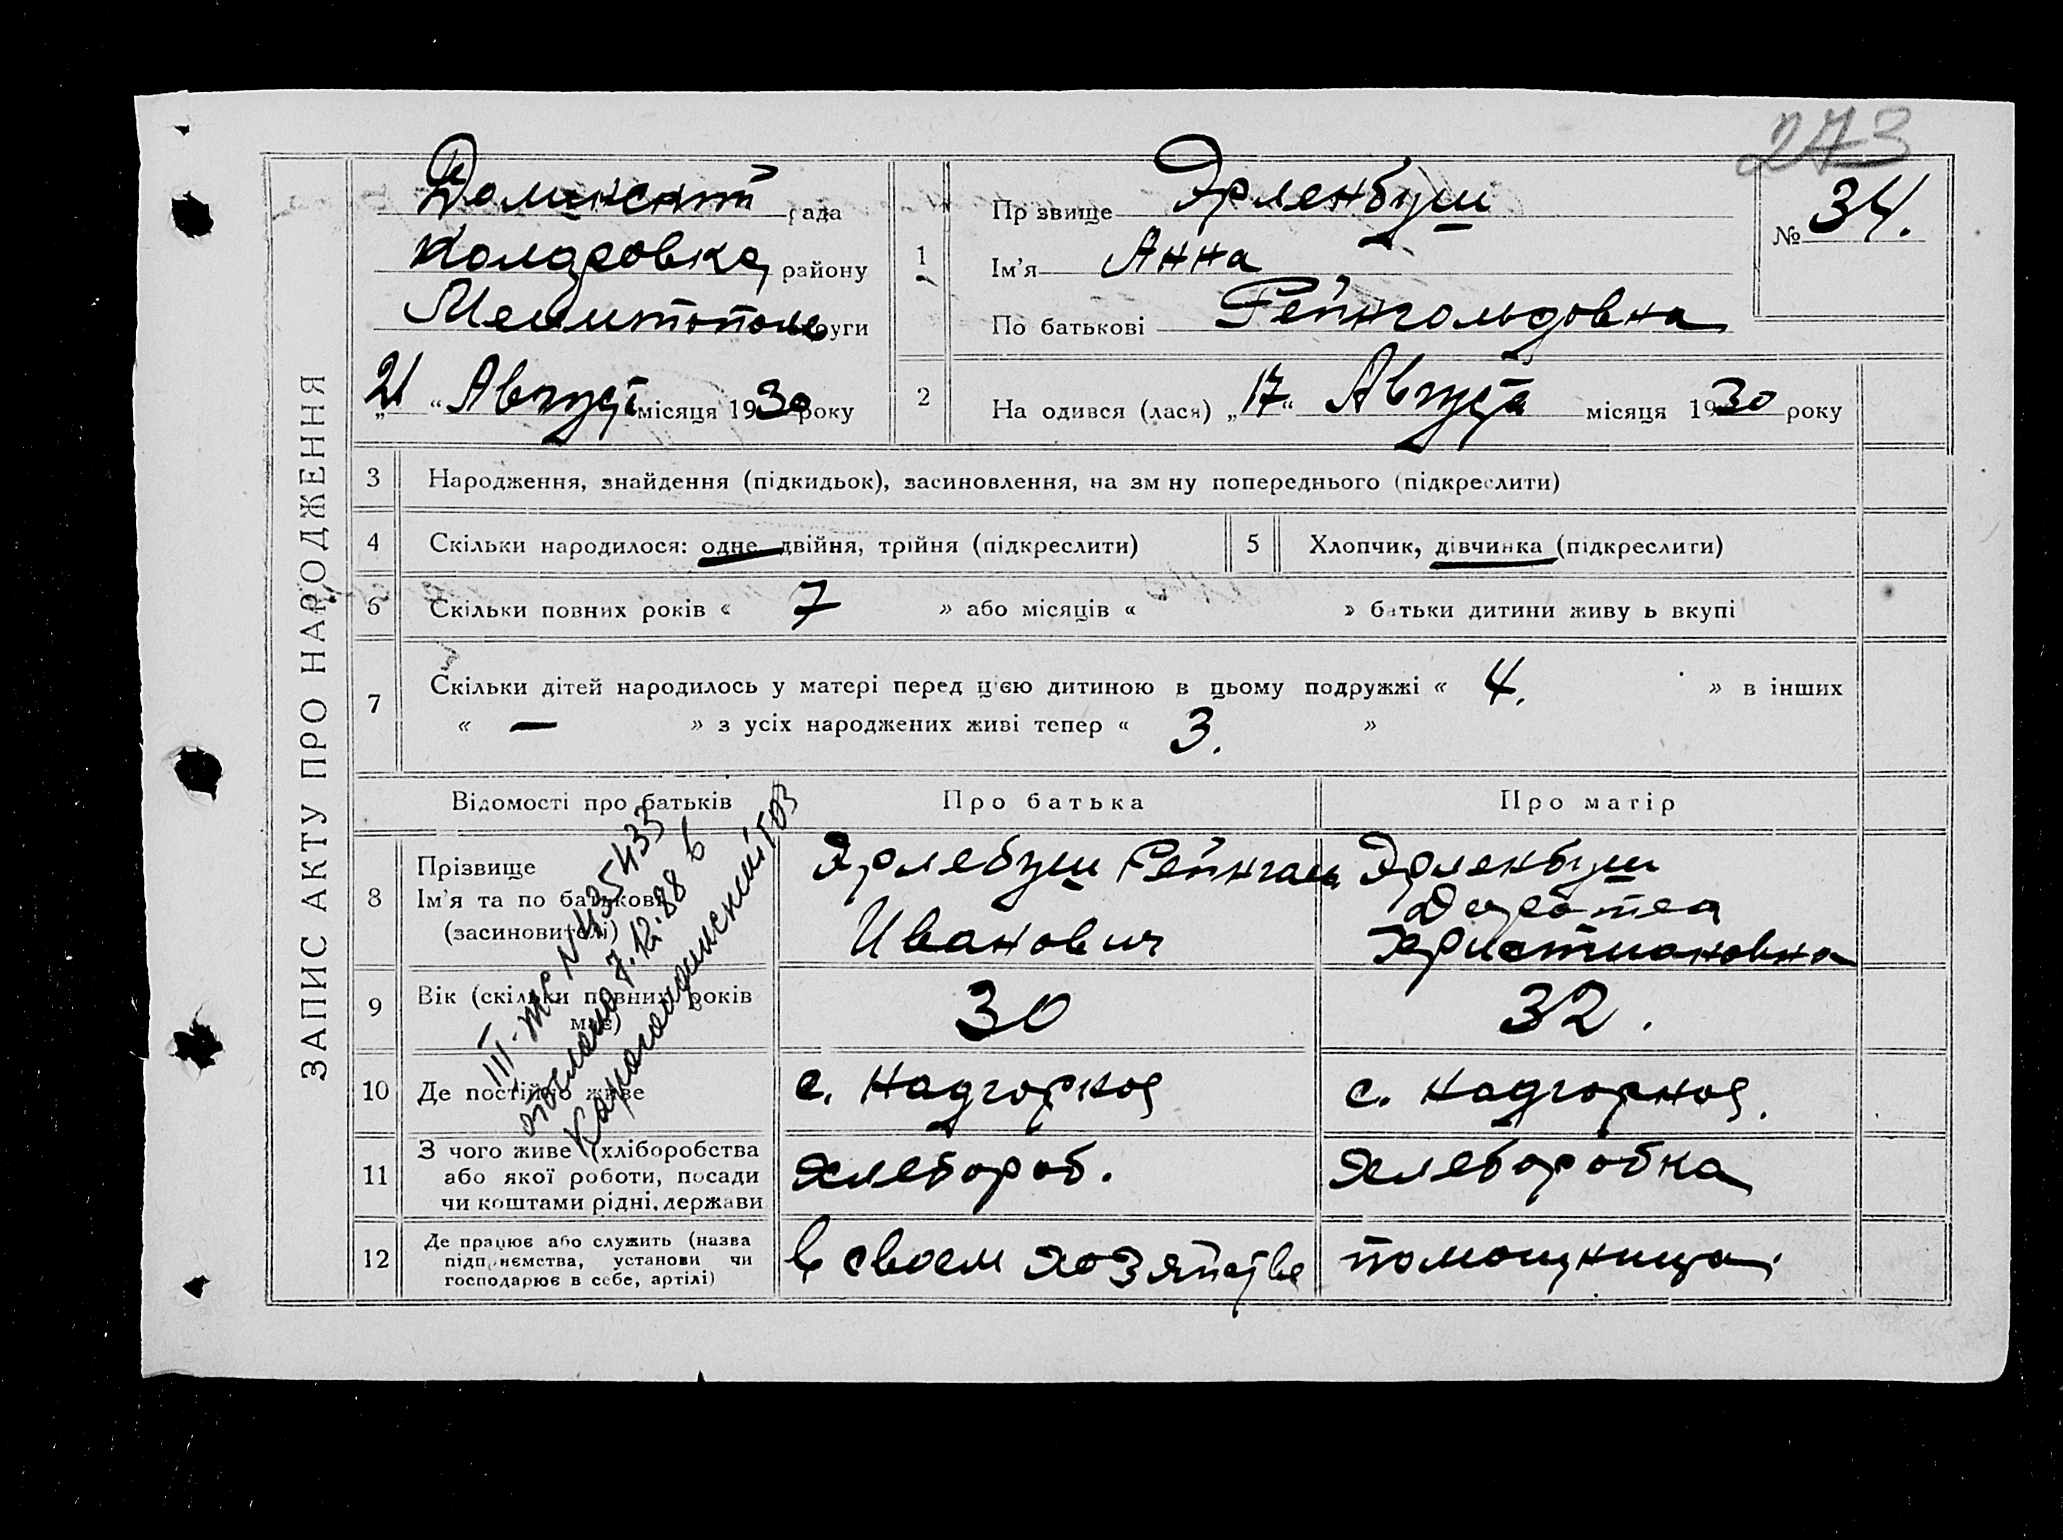 273
ЗАПИС АКТУ ПРО НАРОДЖЕННЯ
рада
району
Мелитополь округи
„21“ Август місяця 1930 року
№ 34.
1
Пр звище Эрленбуш
Ім'я Анна
По батькові Рейнгольдовна
2
На одився (лася) „17“ Августа місяця 1930 року
3 Народження, знайдення (підкидьок), засиновлення, на зм ну попереднього (підкреслити)
4 Скільки народилося: одне, двійня, трійня (підкреслити)
5 Хлопчик, дівчинка (підкреслити)
6 Скільки повних років « 7 » або місяців « » батьки дитини живу ь вкупі
7 Скільки дітей народилось у матері перед цією дитиною в цьому подружжі « 4. » в інших
« — » з усіх народжених живі тепер « 3. »
Відомості про батьків Про батька Про матір
8 Прізвище
Ім'я та по батькові
(засиновителі)
Эрлебуш Рейнгольд
Иванович
Эрленбуш
Доротеа
Христиановна
9 Вік (скільки повних років
має)
30 32.
10 Де постійно живе с. Надгорное с. Надгорное.
11 З чого живе (хліборобства
або якої роботи, посади
чи коштами рідні, держави
хлебороб. хлеборобка
12 Де працює або служить (назва
підприємства, установи чи
господарює в себе, артілі)
в своем хозяйстве помощница.
III-ЖС № 435433
7.12.88 в